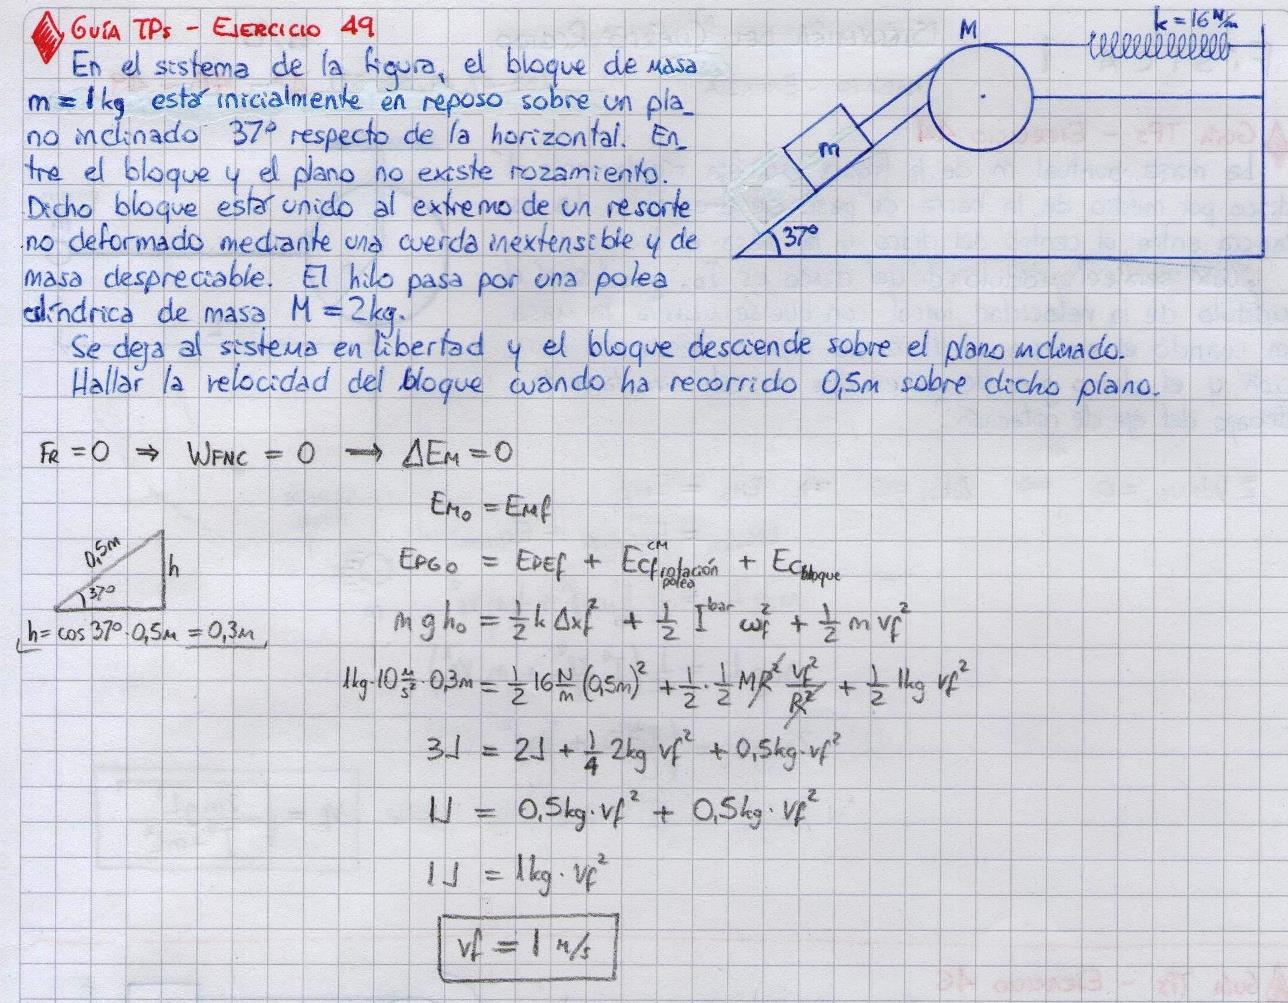 GUÍA TPs - EJERCICIO 49
En el sistema de la figura, el bloque de masa
m = 1kg está inicialmente en reposo sobre un pla_
no inclinado 37° respecto de la horizontal. En_
tre el bloque y el plano no existe rozamiento.
Dicho bloque está unido al extremo de un resorte
no deformado mediante una cuerda inextensible y de
masa despreciable. El hilo pasa por una polea
cilíndrica de masa M = 2kg.
Se deja al sistema en libertad y el bloque desciende sobre el plano inclinado.
Hallar la velocidad del bloque cuando ha recorrido 0,5m sobre dicho plano.
M
k = 16 N/m
m
37°
FR = 0 ⇒ WFNC = 0 → ΔEM = 0
EM0 = EMf
EPG0 = EPEf + ECf CM rotación polea + EC bloque
m g h0 = 1/2 k Δxf² + 1/2 I bar ωf² + 1/2 m vf²
0,5m
h
37°
h = cos 37° · 0,5m = 0,3m
1kg · 10 m/s² · 0,3m = 1/2 16 N/m (0,5m)² + 1/2 · 1/2 MR² vf²/R² + 1/2 1kg vf²
3J = 2J + 1/4 2kg vf² + 0,5kg · vf²
1J = 0,5kg · vf² + 0,5kg · vf²
1J = 1kg · vf²
vf = 1 m/s